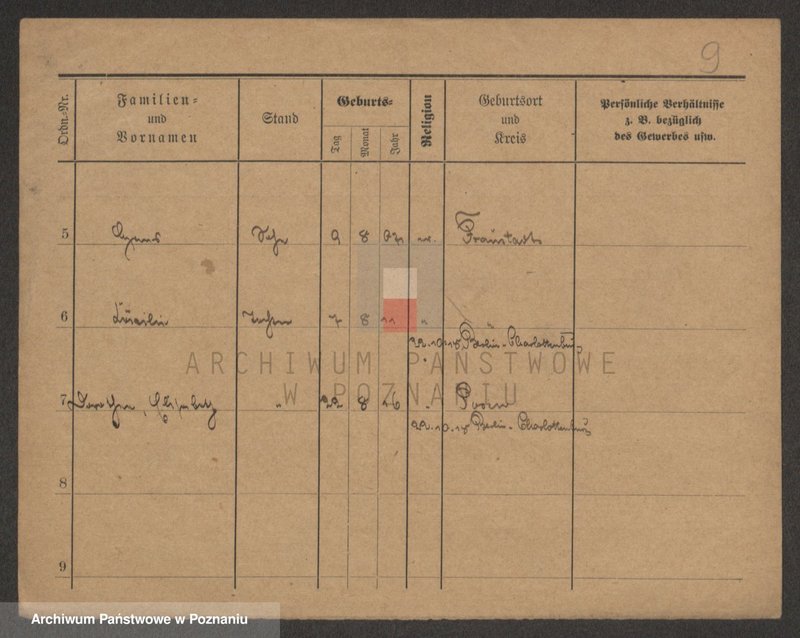 9
Ordn.-Nr.
Familien-
und
Vornamen
Stand
Geburts-
Tag
Monat
Jahr
Religion
Geburtsort
und
Kreis
Persönliche Verhältnisse
z. B. bezüglich
des Gewerbes usw.
5 9 8 Fraustadt
6 7 8 11 "
22.10.18 Berlin-Charlottenburg
ARCHIWUM PAŃSTWOWE
W POZNANIU
7 Dorothea, Elisabeth " 22 8 16 " Posen
22.10.18 Berlin-Charlottenburg
8
9
Archiwum Państwowe w Poznaniu